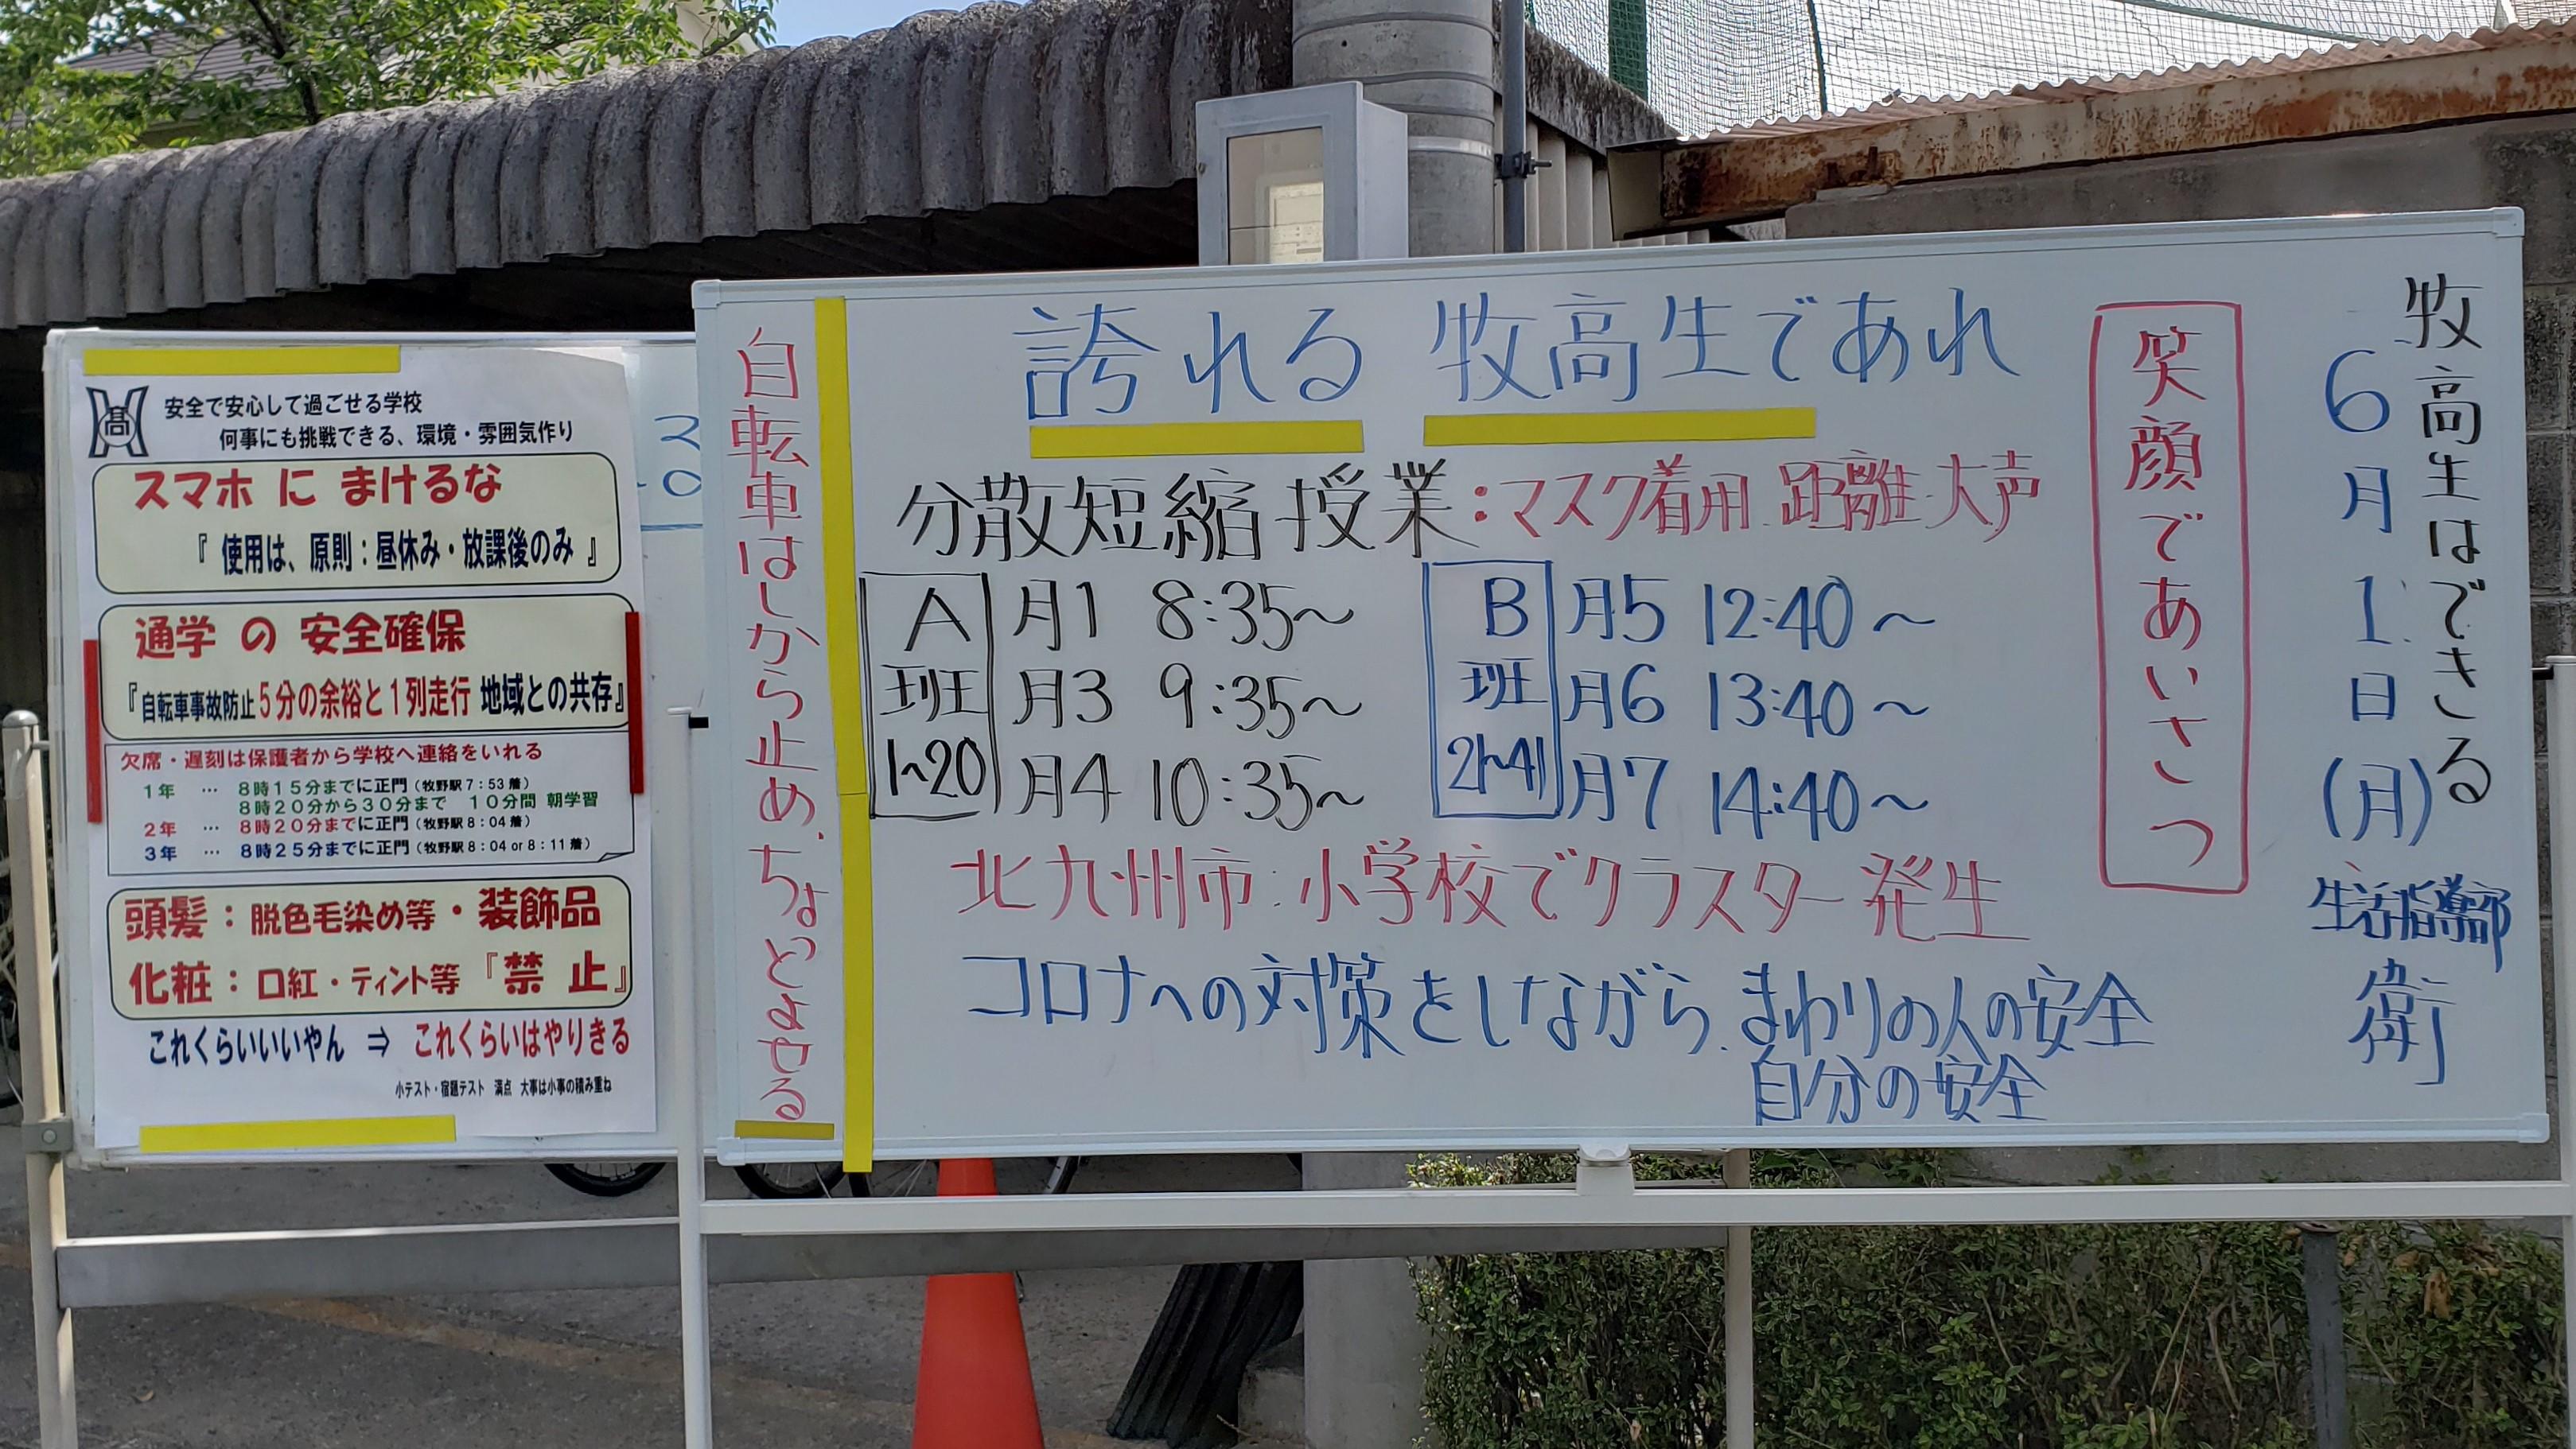 高
安全で安心して過ごせる学校
何事にも挑戦できる、環境・雰囲気作り
スマホ に まけるな
『 使用は、原則：昼休み・放課後のみ 』
通学 の 安全確保
『自転車事故防止５分の余裕と１列走行 地域との共存』
欠席・遅刻は保護者から学校へ連絡をいれる
１年 … ８時１５分までに正門（牧野駅７：５３着）
８時２０分から３０分まで １０分間 朝学習
２年 … ８時２０分までに正門（牧野駅８：０４着）
３年 … ８時２５分までに正門（牧野駅８：０４or８：１１着）
頭髪：脱色毛染め等・装飾品
化粧：口紅・ティント等『禁 止』
これくらいいいやん ⇒ これくらいはやりきる
小テスト・宿題テスト 満点 大事は小事の積み重ね
牧高生はできる
6月1日(月)
生活指導部
衛
笑顔であいさつ
誇れる 牧高生であれ
分散短縮授業：マスク着用 距離 大声
A班 1〜20
月1 8:35〜
月3 9:35〜
月4 10:35〜
B班 21〜41
月5 12:40〜
月6 13:40〜
月7 14:40〜
北九州市 小学校でクラスター発生
コロナへの対策をしながら、まわりの人の安全
自分の安全
自転車はしから止め、ちょっとよせる